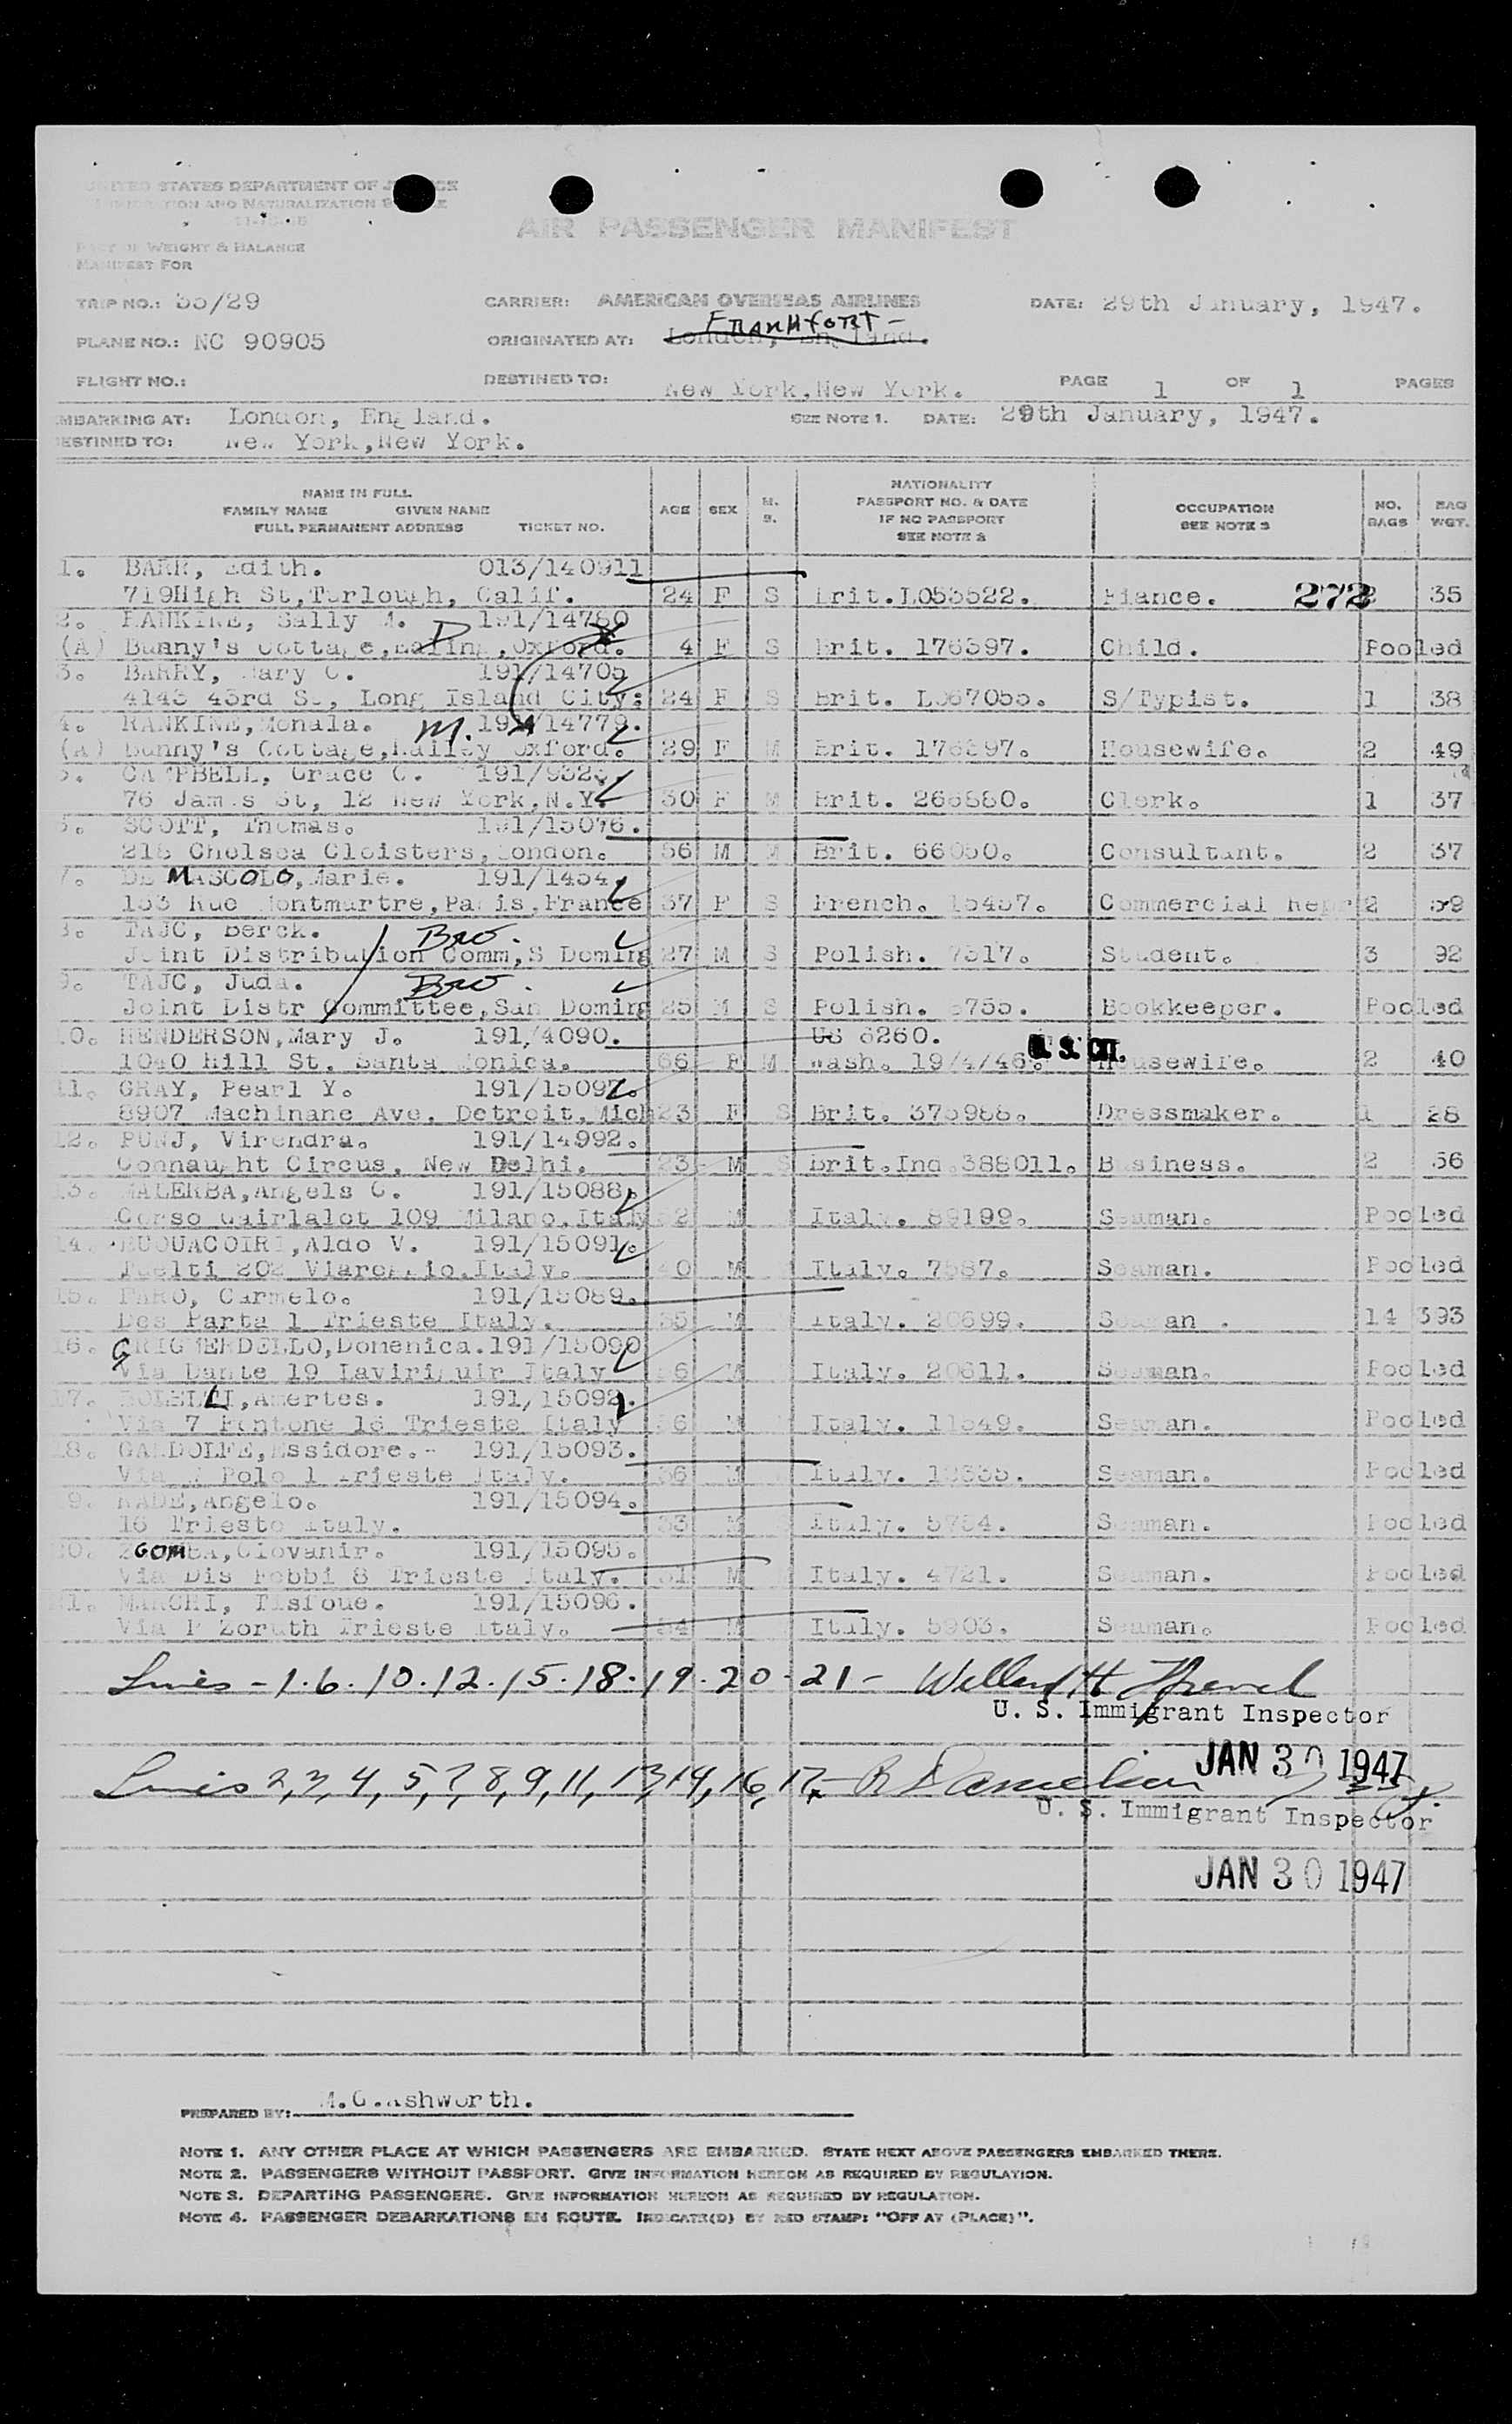 UNITED STATES DEPARTMENT OF
AND NATURALIZATION
AIR PASSENGER MANIFEST
PART OF WEIGHT & BALANCE
MANIFEST FOR
TRIP NO.: 35/29 CARRIER: AMERICAN OVERSEAS AIRLINES DATE: 29th January, 1947.
FRANKFORT-
PLANE NO.: NC 90905 ORIGINATED AT: London, England.
FLIGHT NO.: DESTINED TO: New York,New York. PAGE 1 OF 1 PAGES
EMBARKING AT: London, England. SEE NOTE 1. DATE: 29th January, 1947.
DESTINED TO: New York,New York.
NAME IN FULL
FAMILY NAME GIVEN NAME
FULL PERMANENT ADDRESS TICKET NO.
AGE SEX M. S.
NATIONALITY
PASSPORT NO. & DATE
IF NO PASSPORT
SEE NOTE 2
OCCUPATION
SEE NOTE 3
NO. BAGS BAG WGT.
1. BARR, Edith. 013/140911
719High St,Turlough, Calif. 24 F S Brit.L053522. Fiance. 272 35
2. RANKINE, Sally M. 191/14780
(A) Bunny's Cottage, Oxford. 4 F S Brit. 176397. Child. Pooled
3. BARRY, Mary C. 191/14705
4143 43rd St, Long Island City; 24 F S Brit. L067055. S/Typist. 1 38
4. RANKINE,Monala. M. 191/14779.
(A) Bunny's Cottage, Oxford. 29 F M Brit. 176397. Housewife. 2 49
5. CAMPBELL, Grace C. 191/9328.
76 James St, 12 New York,N.Y. 30 F M Brit. 266880. Clerk. 1 37
6. SCOTT, Thomas. 191/15076.
218 Chelsea Cloisters,London. 56 M M Brit. 66050. Consultant. 2 37
7. DE MASCOLO,Marie. 191/1454
153 Rue Montmartre,Paris,France 37 F S French. 15457. Commercial Repr 2 59
8. TAJC, Berck. Bro.
Joint Distribution Comm,S Doming 27 M S Polish. 7317. Student. 3 92
9. TAJC, Juda. Bro.
Joint Distr Committee,San Doming 25 M S Polish. 3755. Bookkeeper. Pooled
10. HENDERSON,Mary J. 191/4090. US 6260.
1040 Hill St. Santa Monica. 66 F M Wash. 19/4/46. U. S. CIT. Housewife. 2 40
11. GRAY, Pearl Y. 191/15097.
8907 Machinane Ave. Detroit,Mich 23 F S Brit. 375988. Dressmaker. 1 28
12. PUNJ, Virendra. 191/14992.
Connaught Circus, New Delhi. 23 M S Brit.Ind.388011. Business. 2 56
13. MALERBA,Angels C. 191/15088.
Corso Gairlalot 109 Milano,Italy 2 M Italy. 89199. Seaman. Pooled
14. Aldo V. 191/15091.
202 Viareggio,Italy. 40 M Italy. 7587. Seaman. Pooled
15. FARO, Carmelo. 191/15089.
Des Parta 1 Trieste Italy. 35 M Italy. 20699. Seaman. 14 393
16. GRIGMENDELLO,Domenica.191/15090
Via Dante 19 Italy 6 M Italy. 20611. Seaman. Pooled
17. Amertes. 191/15092.
Via 7 Fontone 16 Trieste Italy 36 M Italy. 11549. Seaman. Pooled
18. GANDOLFE,Essidore.- 191/15093.
Via M Polo 1 Trieste Italy. 36 M Italy. 13535. Seaman. Pooled
19. RADE,Angelo. 191/15094.
16 Trieste Italy. 33 M Italy. 5754. Seaman. Pooled
20. ZGOMBA,Giovanir. 191/15095.
Via Dis Fobbi 8 Trieste Italy. 31 M Italy. 4721. Seaman. Pooled
21. MARCHI, Tisfoue. 191/15096.
Via P Zoruth Trieste Italy. 34 M Italy. 5903. Seaman. Pooled
Lines - 1.6.10.12.15.18.19.20.21-
U. S. Immigrant Inspector
JAN 30 1947
Lines 2,3,4,5,7,8,9,11,13,14,16,17-
U. S. Immigrant Inspector
JAN 30 1947
PREPARED BY: M.G.Ashworth.
NOTE 1. ANY OTHER PLACE AT WHICH PASSENGERS ARE EMBARKED. STATE NEXT ABOVE PASSENGERS EMBARKED THERE.
NOTE 2. PASSENGERS WITHOUT PASSPORT. GIVE INFORMATION HEREON AS REQUIRED BY REGULATION.
NOTE 3. DEPARTING PASSENGERS. GIVE INFORMATION HEREON AS REQUIRED BY REGULATION.
NOTE 4. PASSENGER DEBARKATIONS EN ROUTE. INDICATE(D) BY RED STAMP: "OFF AT (PLACE)".